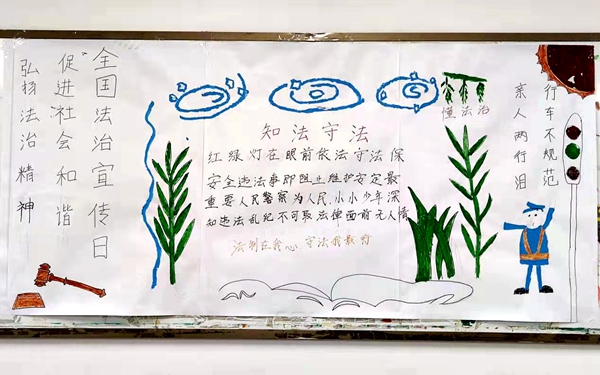 全国法治宣传日
促进社会和谐
弘扬法治精神
知法守法
红绿灯在眼前依法守法保
安全违法事即阻止维护安定最
重要人民警察为人民,小小少年深
知违法乱纪不可取法律面前无人情
法制在我心 守法我最行
懂法治
行车不规范
亲人两行泪